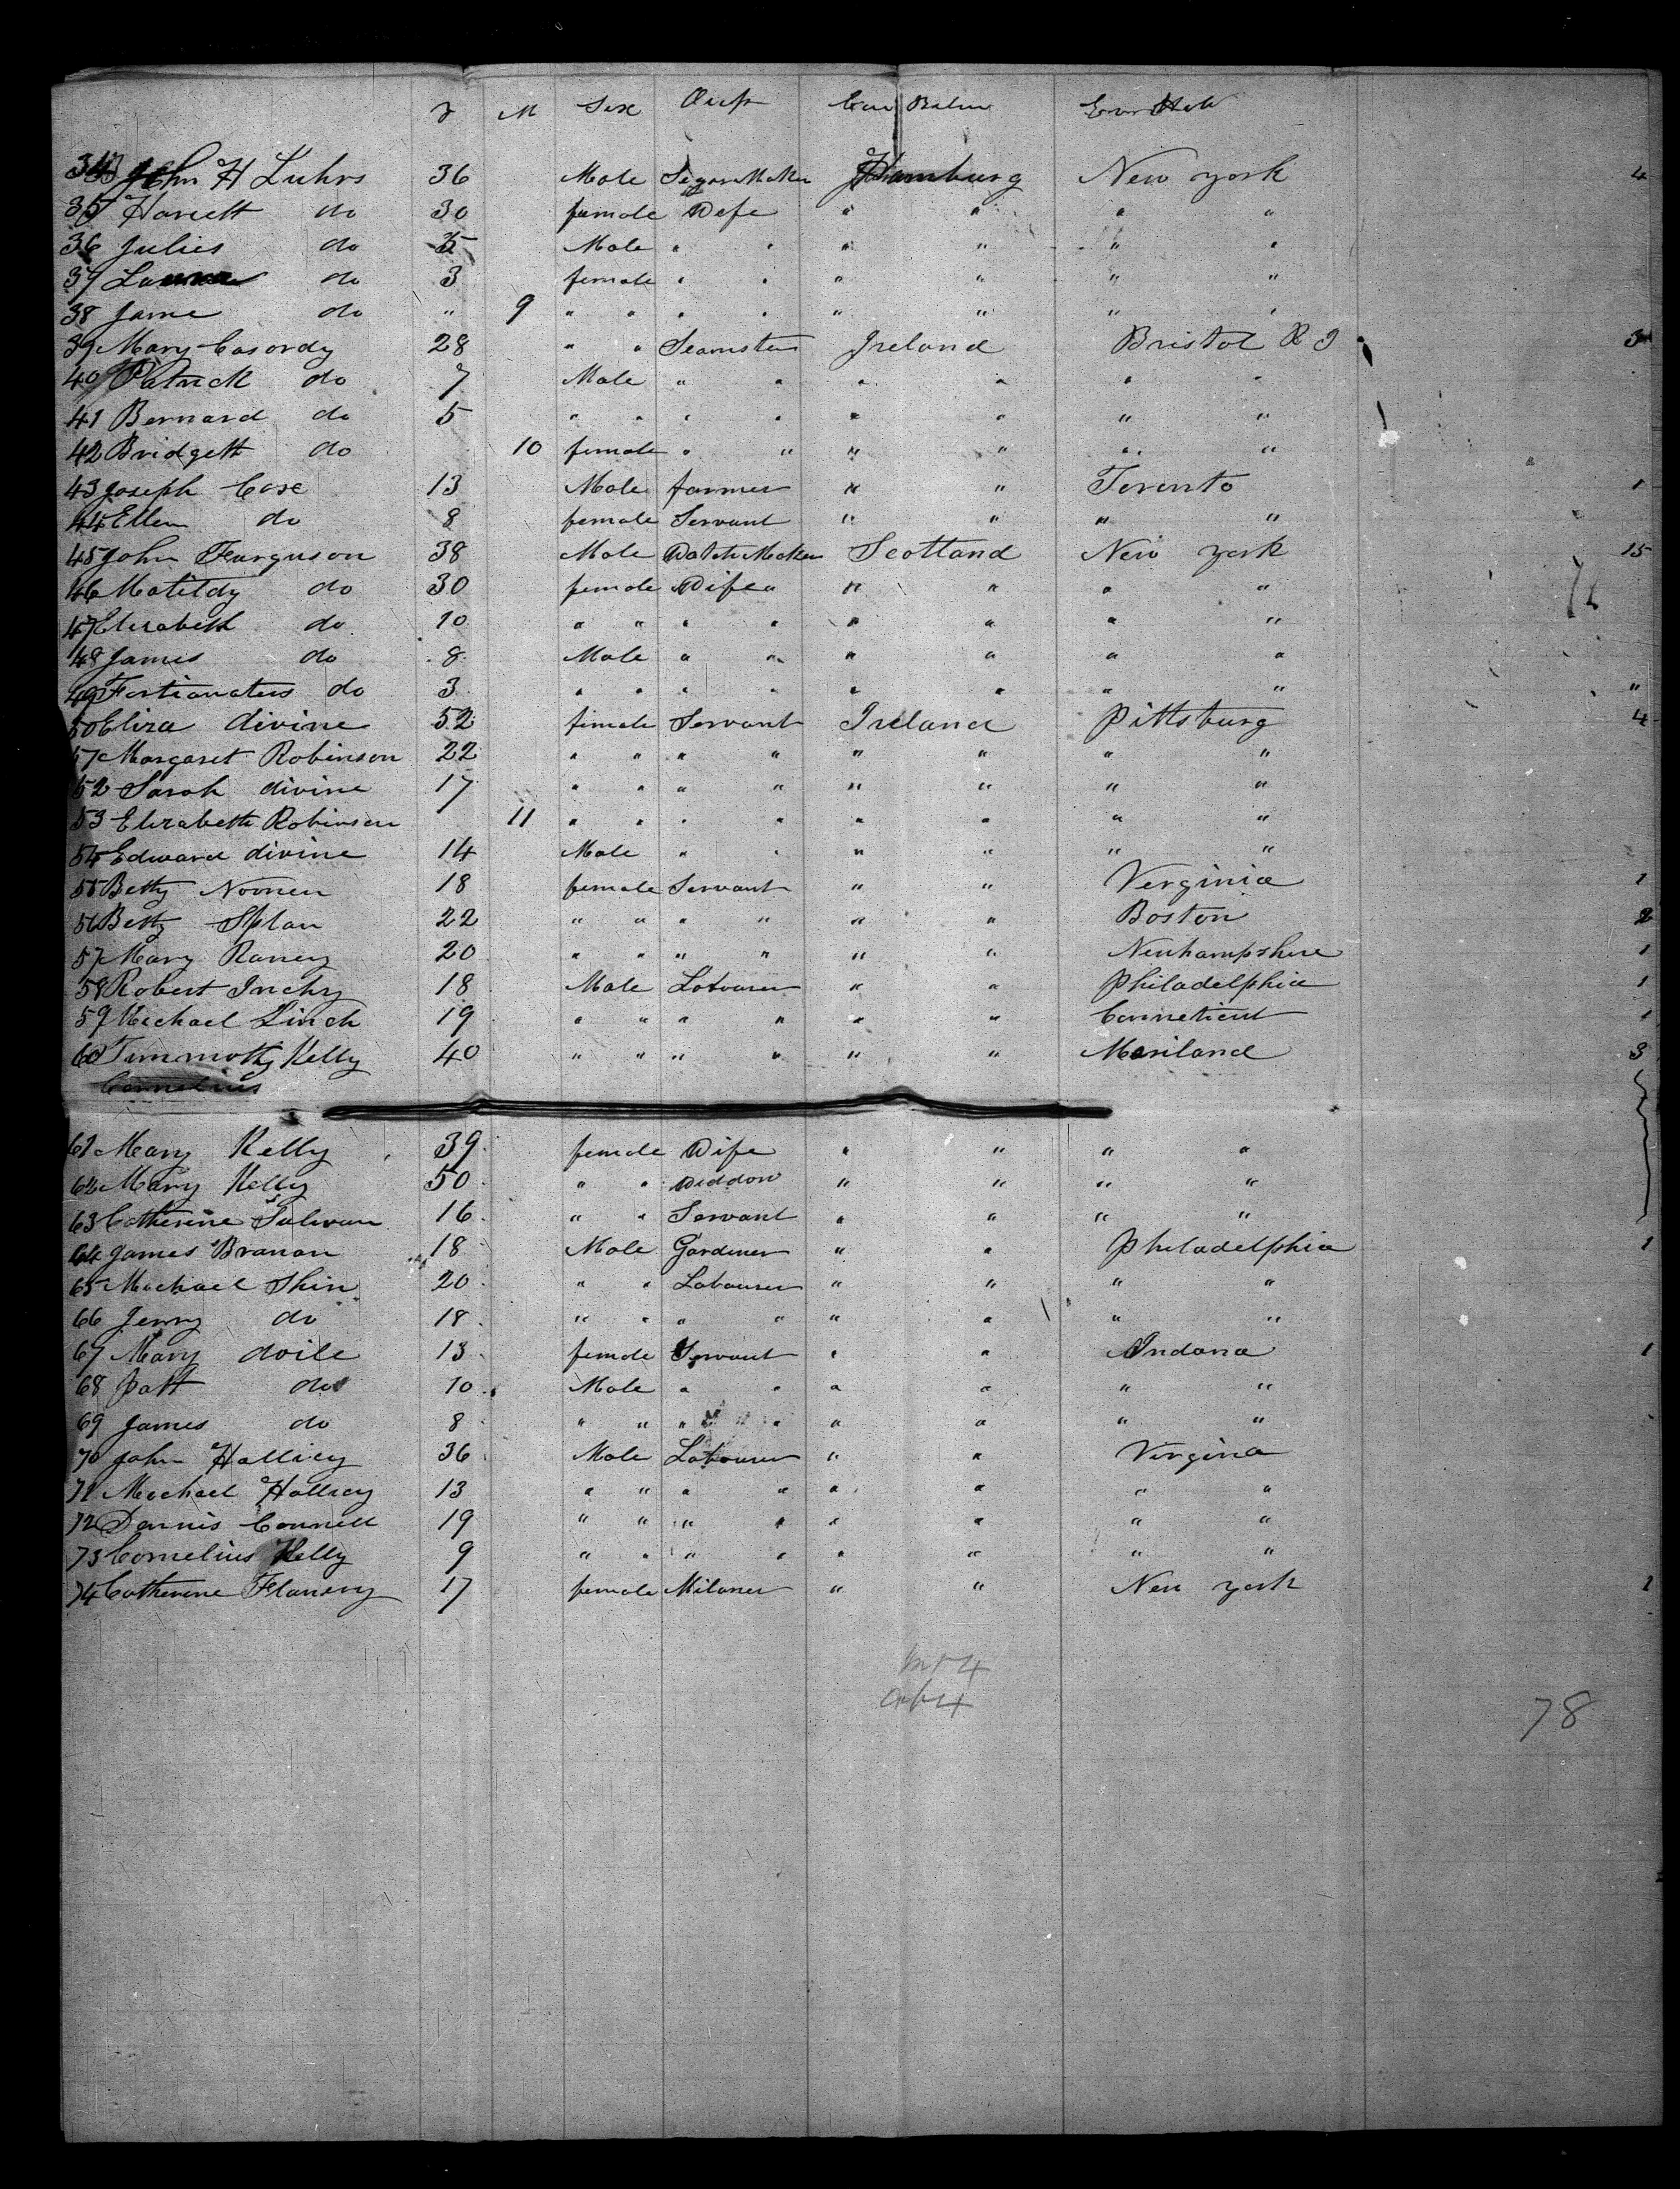 Y M Sex Occp
34 John H Luhrs 36 Male Segar Maker Hamburg New york 4
35 Hariett do 30 female Wife " " " "
36 Julies do 5 Male " " " " " "
37 do 3 female " " " " " "
38 Jame do " 9 " " " " " " " "
39 Mary Casordy 28 " " Seamster Ireland Bristol R I 3
40 Patrick do 7 Male " " " " " "
41 Bernard do 5 " " " " " " " "
42 Bridgett do 10 female " " " " " "
43 Joseph Case 13 Male farmer " " Toronto 1
44 Ellen do 8 female Servant " " " "
45 John Furguson 38 Male Watch Maker Scotland New york 15
46 Matildy do 30 female Wife " " " "
47 Elizabeth do 10 " " " " " " " "
48 James do 8 Male " " " " " "
49 Fortianatus do 3 " " " " " " " " "
50 Eliza divine 52 female Servant Ireland Pittsburg 4
51 Margaret Robinson 22 " " " " " " " "
52 Sarah divine 17 " " " " " " " "
53 Elizabeth Robinson 11 " " " " " " " "
54 Edward divine 14 Male " " " " " "
55 Betty Noonen 18 female Servant " " Verginia 1
56 Betty Splan 22 " " " " " " Boston 2
57 Mary Raney 20 " " " " " " Newhampshire 1
58 Robert Inchy 18 Male Labourer " " Philadelphia 1
59 Michael Linch 19 " " " " " " Conneticut 1
60 Timmothy Kelly 40 " " " " " " Mariland 3
Cornelius
61 Mary Kelly 39 female Wife " " " "
62 Mary Kelly 50 " " Widdow " " " "
63 Catherine Sulivan 16 " " Servant " " " "
64 James Branan 18 Male Gardener " " Philadelphia 1
65 Michael Shin 20 " " Labourer " " " "
66 Jerry do 18 " " " " " " " "
67 Mary doile 13 female Servant " " Indana 1
68 Patt do 10 Male " " " " " "
69 James do 8 " " " " " " " "
70 John Halliey 36 Male Labourer " " Virgina
71 Michael Halliey 13 " " " " " " " "
72 Dennis Connell 19 " " " " " " " "
73 Cornelius Kelly 9 " " " " " " " "
74 Catherine Flanery 17 female Milaner " " New york 1
78